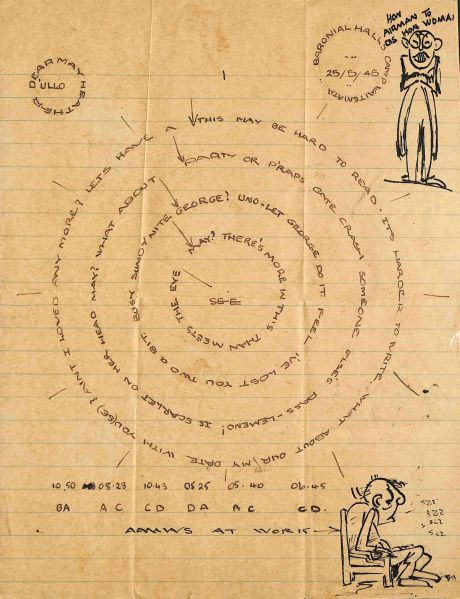 DEAR MAY HEATHER
'ULLO
BARONIAL HALL, CAMP WAITEMATA
25/5/45
HON AIRMAN TO
HON WOMAN
THIS MAY BE HARD TO READ. ITS HARDER TO WRITE. WHAT ABOUT OUR/MY DATE WITH YOU(SE)? AINT I LOVED ANY MORE? LET'S HAVE A
PARTY OR P'RAPS GATE CRASH SOMEONE ELSE'S PASS-LEMENO! IS SCARLET ON HER HEAD MAY? WHAT ABOUT
GEORGE? UNO-LET GEORGE DO IT. FEEL I'VE LOST YOU TWO A BIT. BUSY SUNDY NITE
MAY? THERE'S MORE IN THIS THAN MEETS THE EYE
SEE
10.50 08.23 10.43 08.25 05.40 06.45
BA AC CD DA AC CD.
AAMWS AT WORK